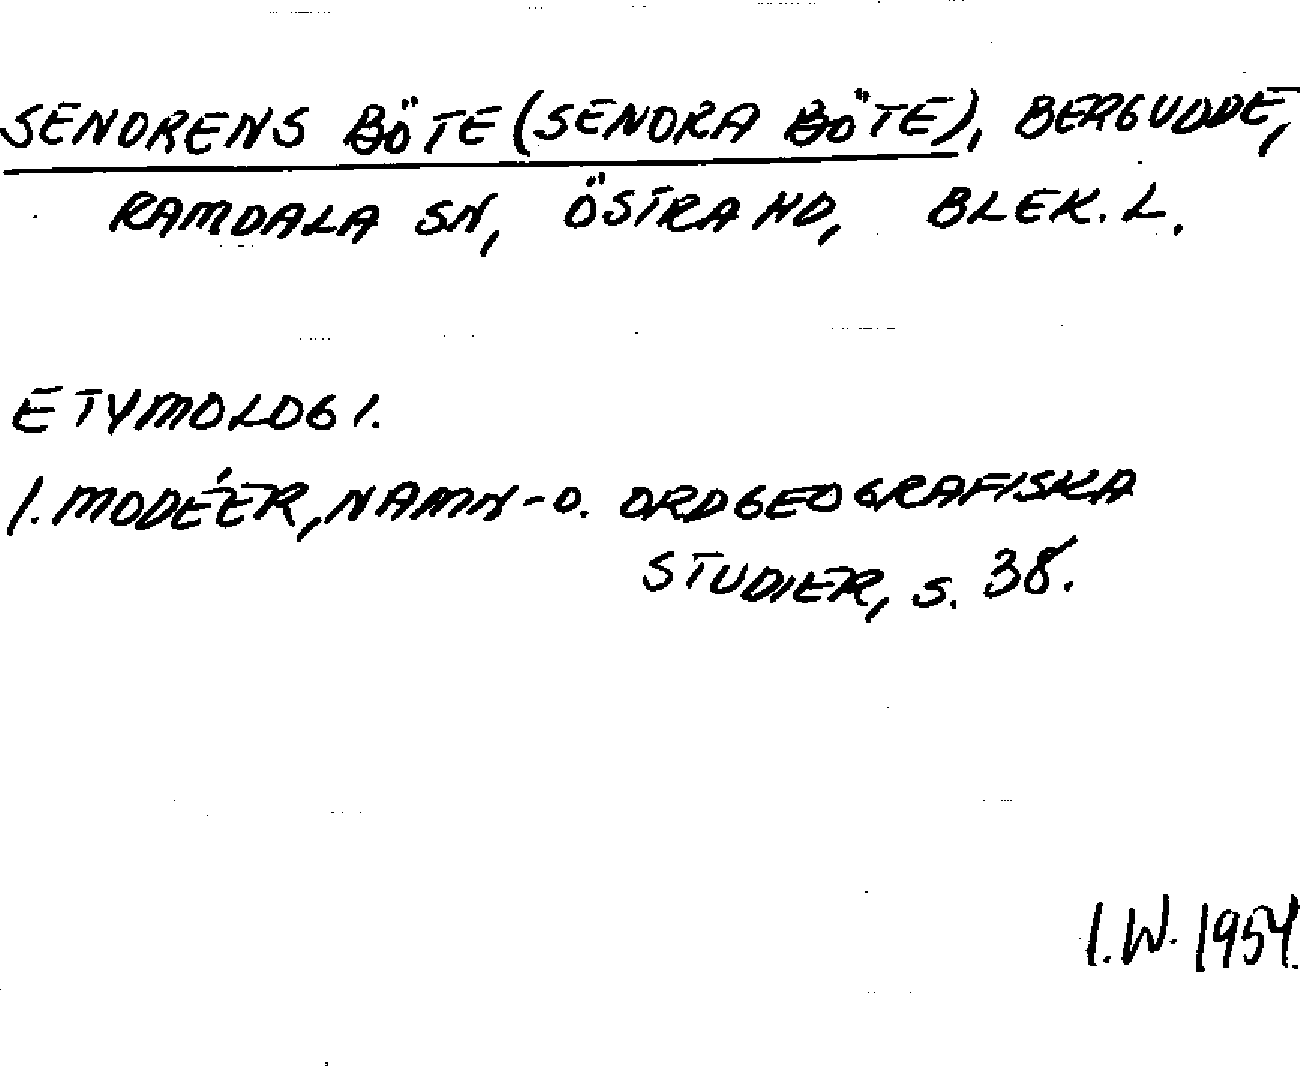 SENORENS BÖTE (SENORA BÖTE), BERGUDDE,
RAMDALA SN, ÖSTRA HD, BLEK. L.
ETYMOLOGI.
I. MODÉER, NAMN- O. ORDGEOGRAFISKA
STUDIER, S. 38.
I.W. 1954.